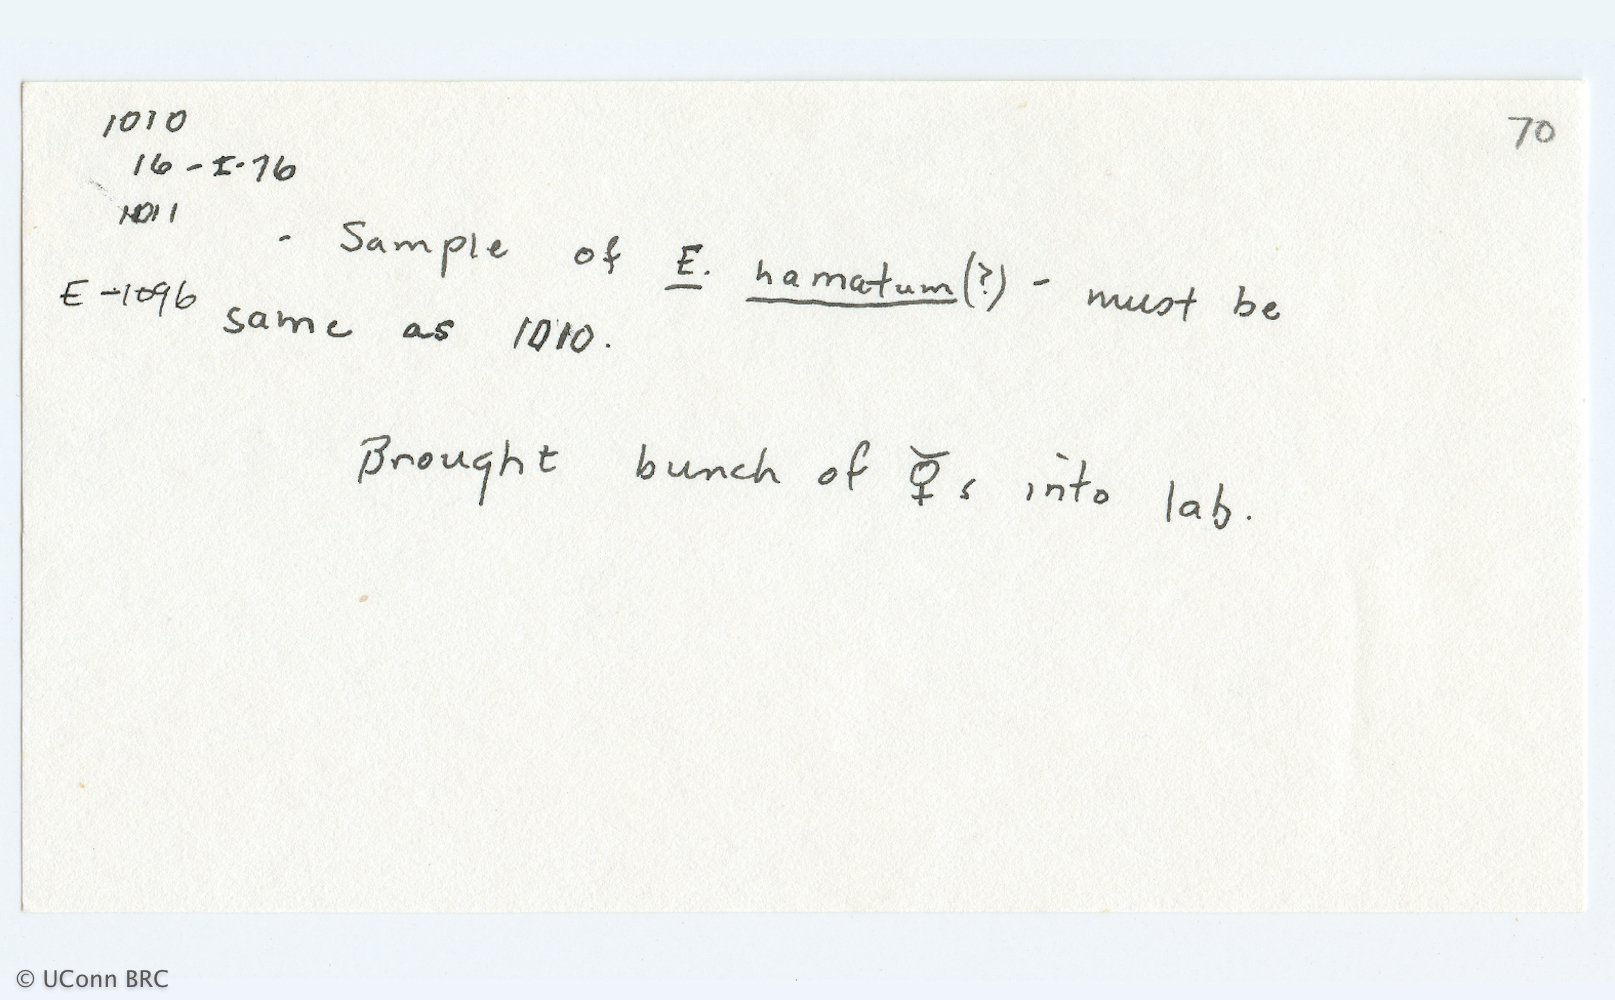 1010
70
16-I-76
1011
- Sample of E. hamatum(?) - must be
E-1096
same as 1010.
Brought bunch of ☿s into lab.
© UConn BRC